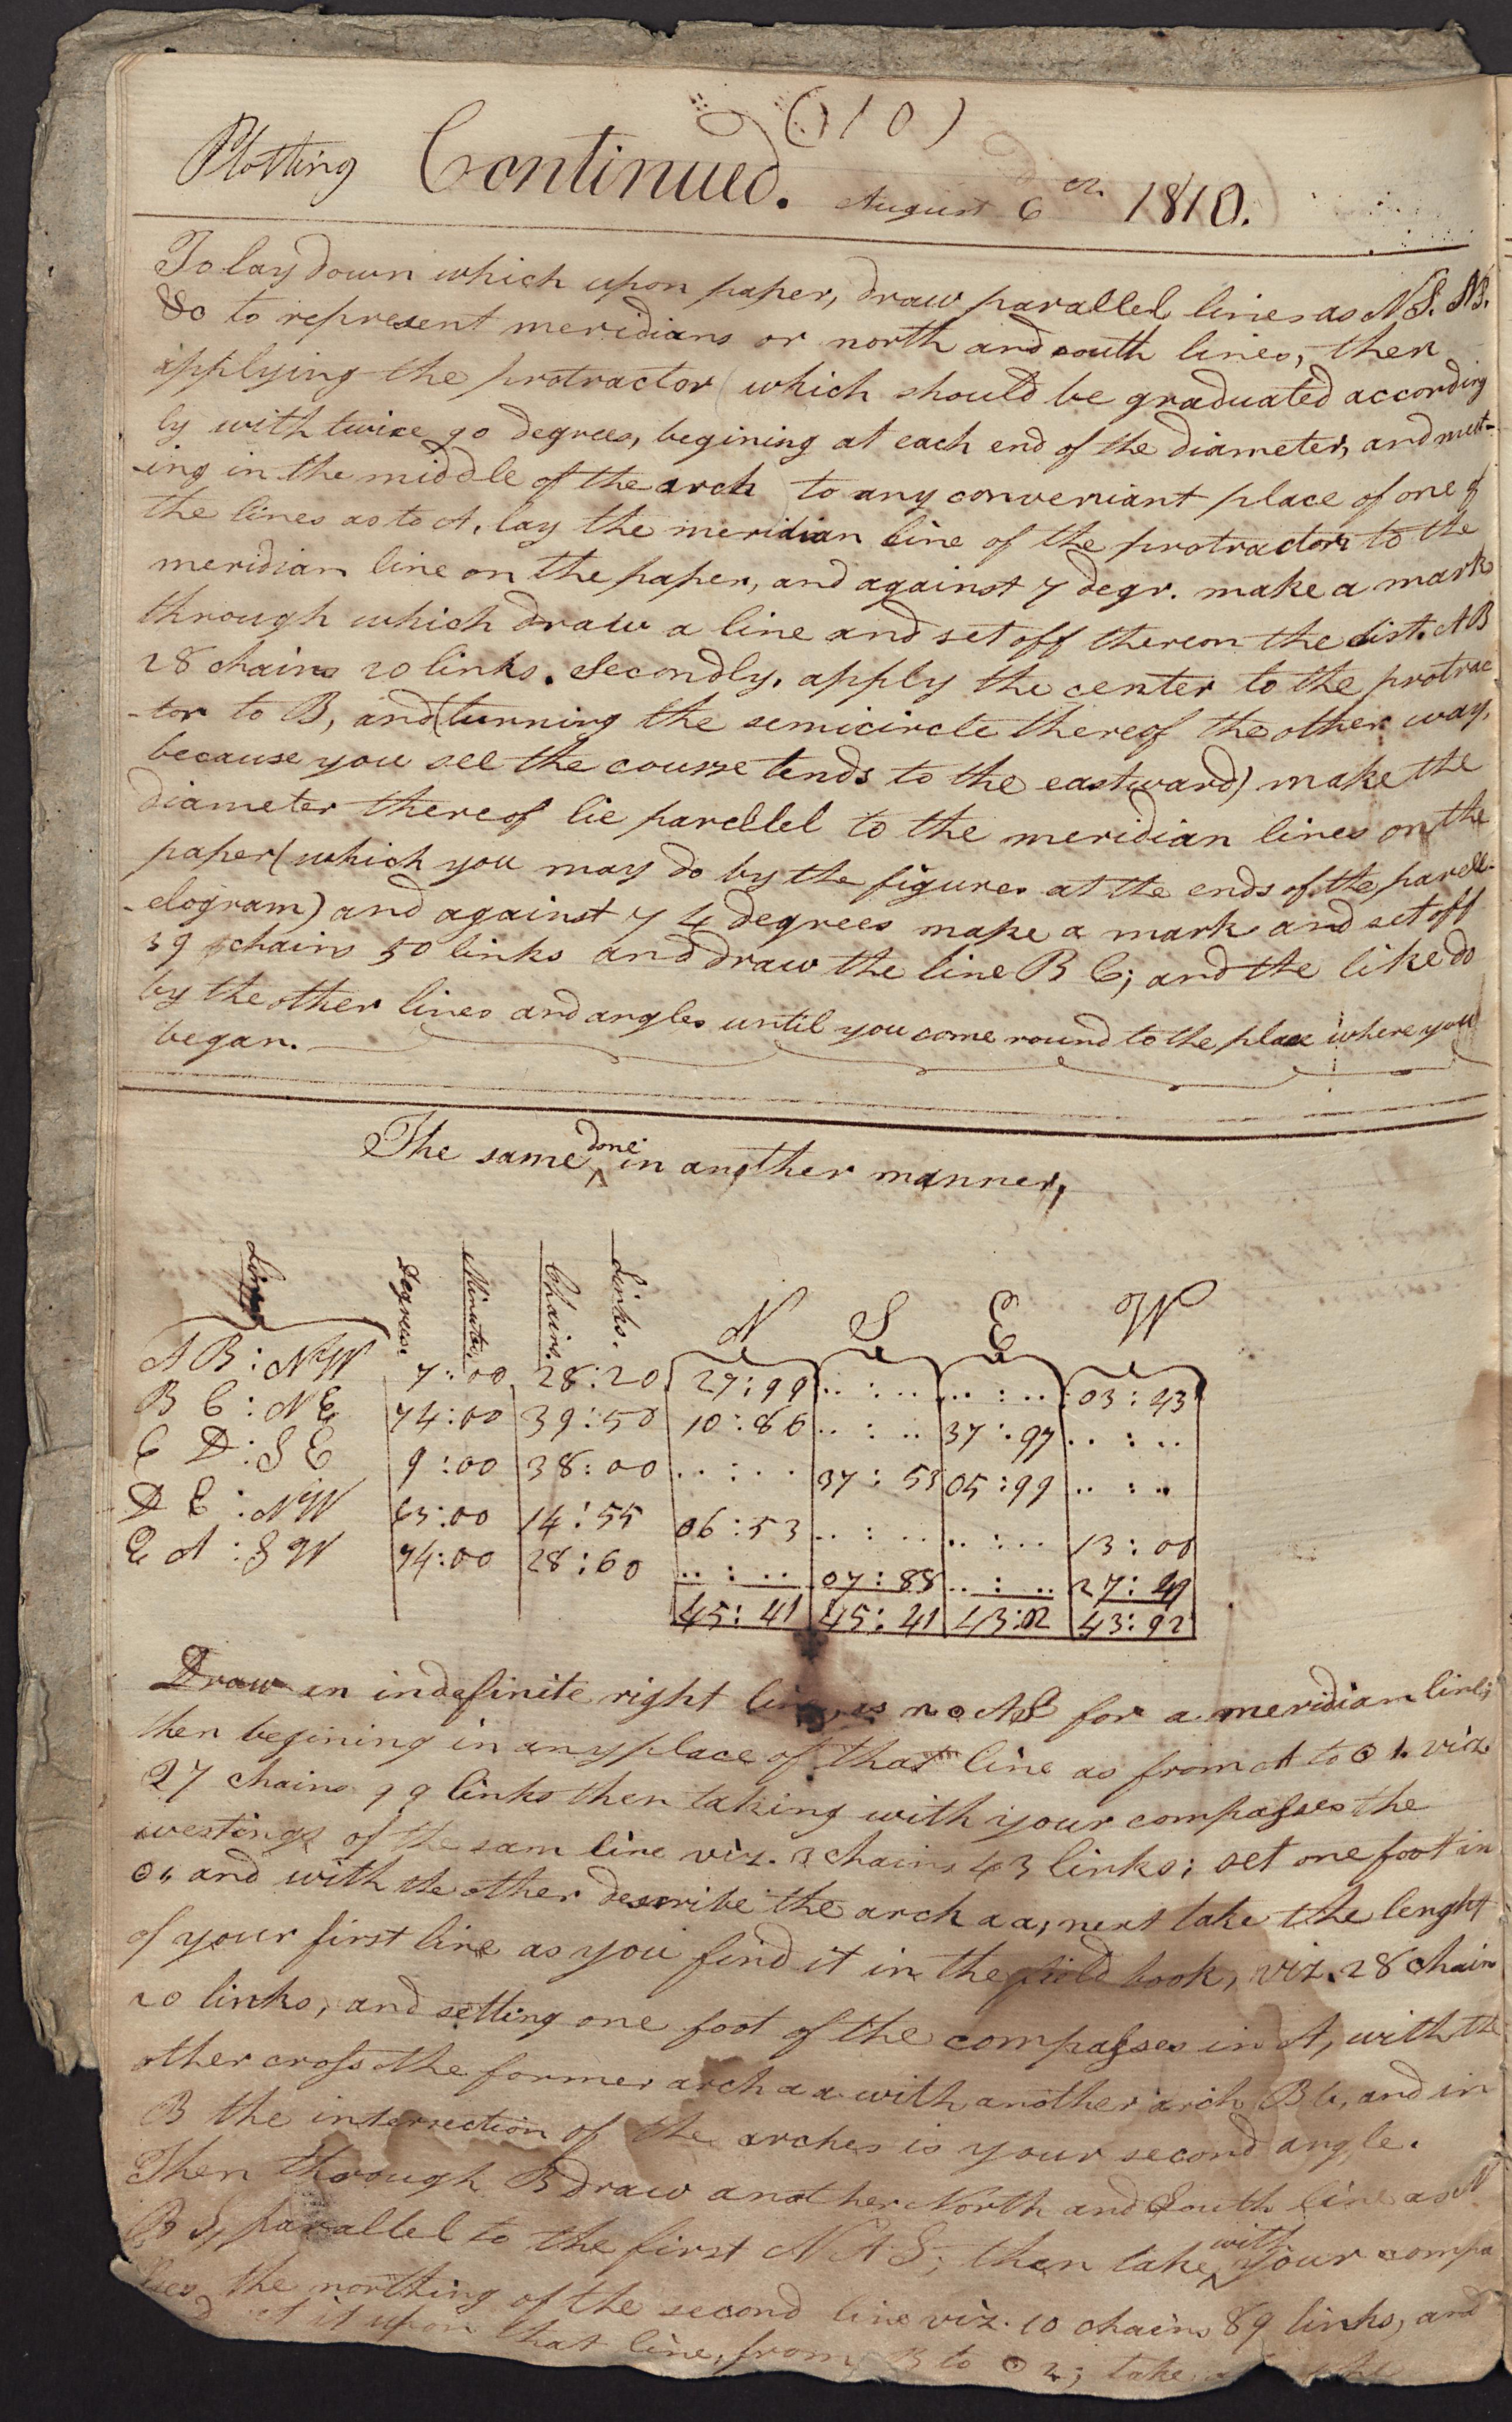 (110)
Plotting Continued. August 6th 1810.
To lay down which upon paper, draw parallel lines as NS. NS.
&c to represent meridians or north and south lines, then
applying the protractor (which should be graduated according
ly with twice 90 degrees, begining at each end of the diameter, and meet-
-ing in the middle of the arch to any conveniant place of one of
the lines as to A, lay the meridian line of the protractor to the
meridian line on the paper, and against 7 degr. make a mark
through which draw a line and set off thereon the dist. AB
28 chains 20 links. Secondly, apply the center to the protrac
-tor to B, and (turning the semicircle thereof the other way,
because you see the course tends to the eastward) make the
diameter thereof lie parellel to the meridian lines on the
paper (which you may do by the figures at the ends of the parell-
-elogram) and against 74 degrees make a mark and set off
39 chains 50 links and draw the line B C; and the like do
by the other lines and angles until you come round to the place where you
began.
The same done in another manner,
Lines Degrees. Minutes. Chains. Links. N S E W
A B : NW 7:00 28:20 27:99 ..:.. ..:.. 03:43
B C : NE 74:00 39:50 10:86 ..:.. 37:97 ..:..
C D : S E 9:00 38:00 ..:.. 37:53 05:99 ..:..
D E : NW 63:00 14:55 06:53 ..:.. ..:.. 13:00
E A : S W 74:00 28:60 ..:.. 07:88 ..:.. 27:49
45:41 45:41 43:92
Draw an indefinite right line, as for a meridian line;
then begining in any place of that line as from A to ʘ 1. viz.
27 chains 99 links then taking with your compasses the
westings of the sam line viz. 3 chains 43 links; set one foot in
ʘ 1, and with the other describe the arch a a, next take the lenght
of your first line as you find it in the field book, viz. 28 chain
20 links, and setting one foot of the compasses in A, with the
other cross the former arch a a with another arch B b, and in
B the intersection of the arches is your second angle.
Then through B draw another North and South line as N
B S, parallel to the first N A S; then take with your compa
sses the northing of the second line viz. 10 chains 89 links, and
set it upon that line, from B to ʘ 2; take the